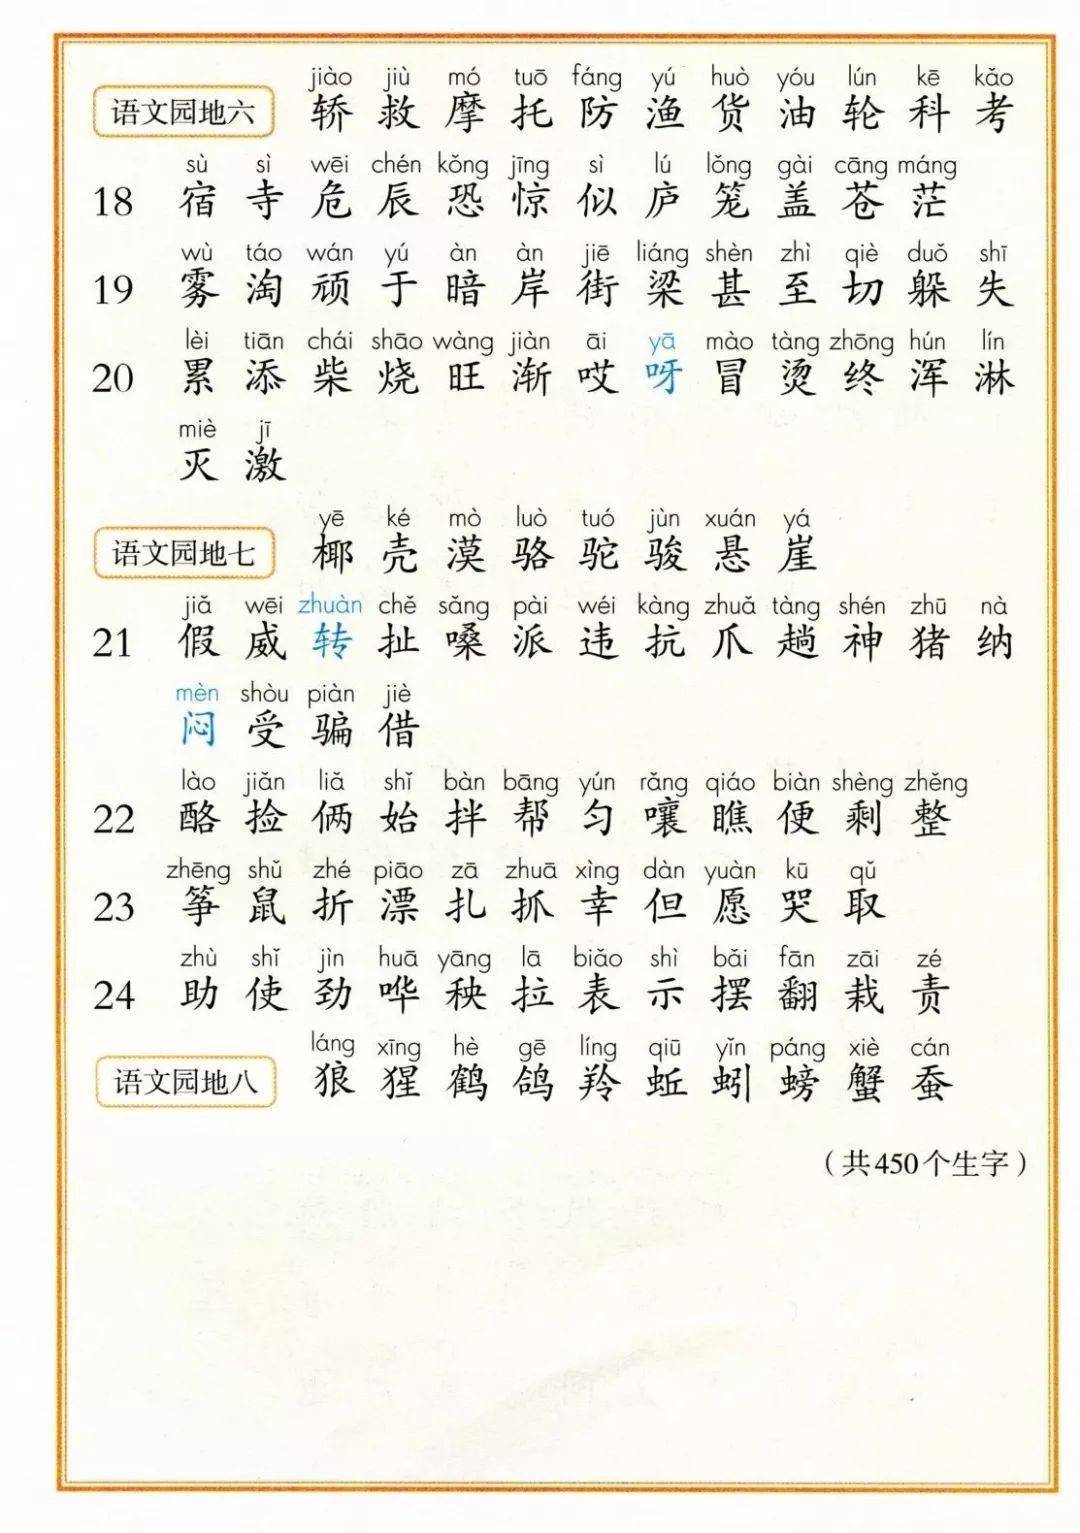 jiào jiù mó tuō fáng yú huò yóu lún kē kǎo
语文园地六 轿 救 摩 托 防 渔 货 油 轮 科 考
sù sì wēi chén kǒng jīng sì lú lǒng gài cāng máng
18 宿 寺 危 辰 恐 惊 似 庐 笼 盖 苍 茫
wù táo wán yú àn àn jiē liáng shèn zhì qiè duǒ shī
19 雾 淘 顽 于 暗 岸 街 梁 甚 至 切 躲 失
lèi tiān chái shāo wàng jiàn āi yā mào tàng zhōng hún lín
20 累 添 柴 烧 旺 渐 哎 呀 冒 烫 终 浑 淋
miè jī
灭 激
yē ké mò luò tuó jùn xuán yá
语文园地七 椰 壳 漠 骆 驼 骏 悬 崖
jiǎ wēi zhuàn chě sǎng pài wéi kàng zhuǎ tàng shén zhū nà
21 假 威 转 扯 嗓 派 违 抗 爪 趟 神 猪 纳
mèn shòu piàn jiè
闷 受 骗 借
lào jiǎn liǎ shǐ bàn bāng yún rǎng qiáo biàn shèng zhěng
22 酪 捡 俩 始 拌 帮 匀 嚷 瞧 便 剩 整
zhēng shǔ zhé piāo zā zhuā xìng dàn yuàn kū qǔ
23 筝 鼠 折 漂 扎 抓 幸 但 愿 哭 取
zhù shǐ jìn huā yāng lā biǎo shì bǎi fān zāi zé
24 助 使 劲 哗 秧 拉 表 示 摆 翻 栽 责
láng xīng hè gē líng qiū yǐn páng xiè cán
语文园地八 狼 猩 鹤 鸽 羚 蚯 蚓 螃 蟹 蚕
（共450个生字）